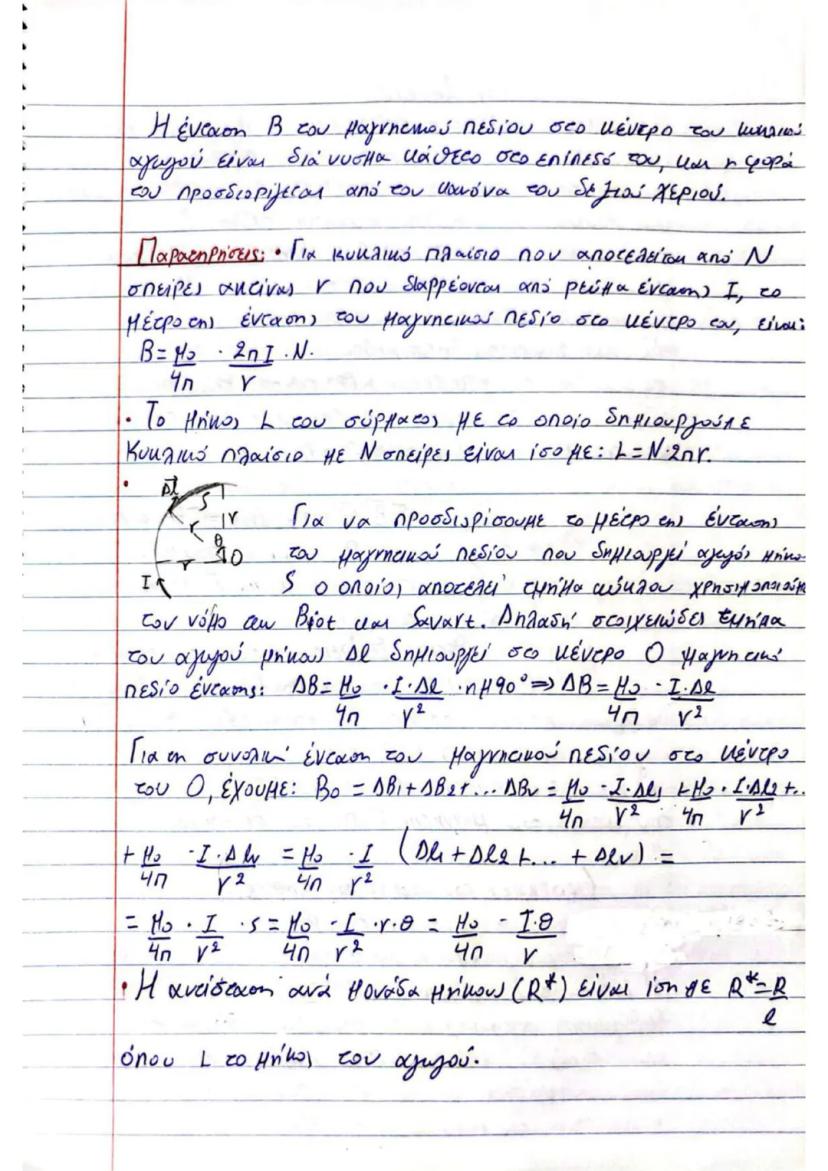 Η ένταση B του μαγνητικού πεδίου στο κέντρο του κυκλικού
αγωγού είναι διάνυσμα κάθετο στο επίπεδό του, και η φορά
του προσδιορίζεται από τον κανόνα του δεξιού χεριού.
Παρατηρήσεις: • Για κυκλικό πλαίσιο που αποτελείται από N
σπείρες ακτίνας r που διαρρέονται από ρεύμα έντασης I, το
μέτρο της έντασης του μαγνητικού πεδίο στο κέντρο του, είναι:
B = μ₀/4π · 2πI/r · N.
• Το μήκος L του σύρματος με το οποίο δημιουργούμε
κυκλικό πλαίσιο με N σπείρες είναι ίσο με: L = N·2πr.
•
Δl S
r r
θ
r O
I
Για να προσδιορίσουμε το μέτρο της έντασης
του μαγνητικού πεδίου που δημιουργεί αγωγός μήκο
S ο οποίος αποτελεί τμήμα κύκλου χρησιμοποιούμ
τον νόμο των Biot και Savart. Δηλαδή στοιχειώδες τμήμα
του αγωγού μήκους Δl δημιουργεί στο κέντρο O μαγνητικό
πεδίο έντασης: ΔB = μ₀/4π · I·Δl/r² · ημ90° ⇒ ΔB = μ₀/4π · I·Δl/r²
Για τη συνολική ένταση του μαγνητικού πεδίου στο κέντρο
του O, έχουμε: B₀ = ΔB₁ + ΔB₂ + ... ΔBν = μ₀/4π · I·Δl₁/r² + μ₀/4π · I·Δl₂/r² + ..
+ μ₀/4π · I·Δlν/r² = μ₀/4π · I/r² (Δl₁ + Δl₂ + ... + Δlν) =
= μ₀/4π · I/r² · s = μ₀/4π · I/r² · r·θ = μ₀/4π · I·θ/r
• Η αντίσταση ανά μονάδα μήκους (R*) είναι ίση με R* = R/l
όπου L το μήκος του αγωγού.